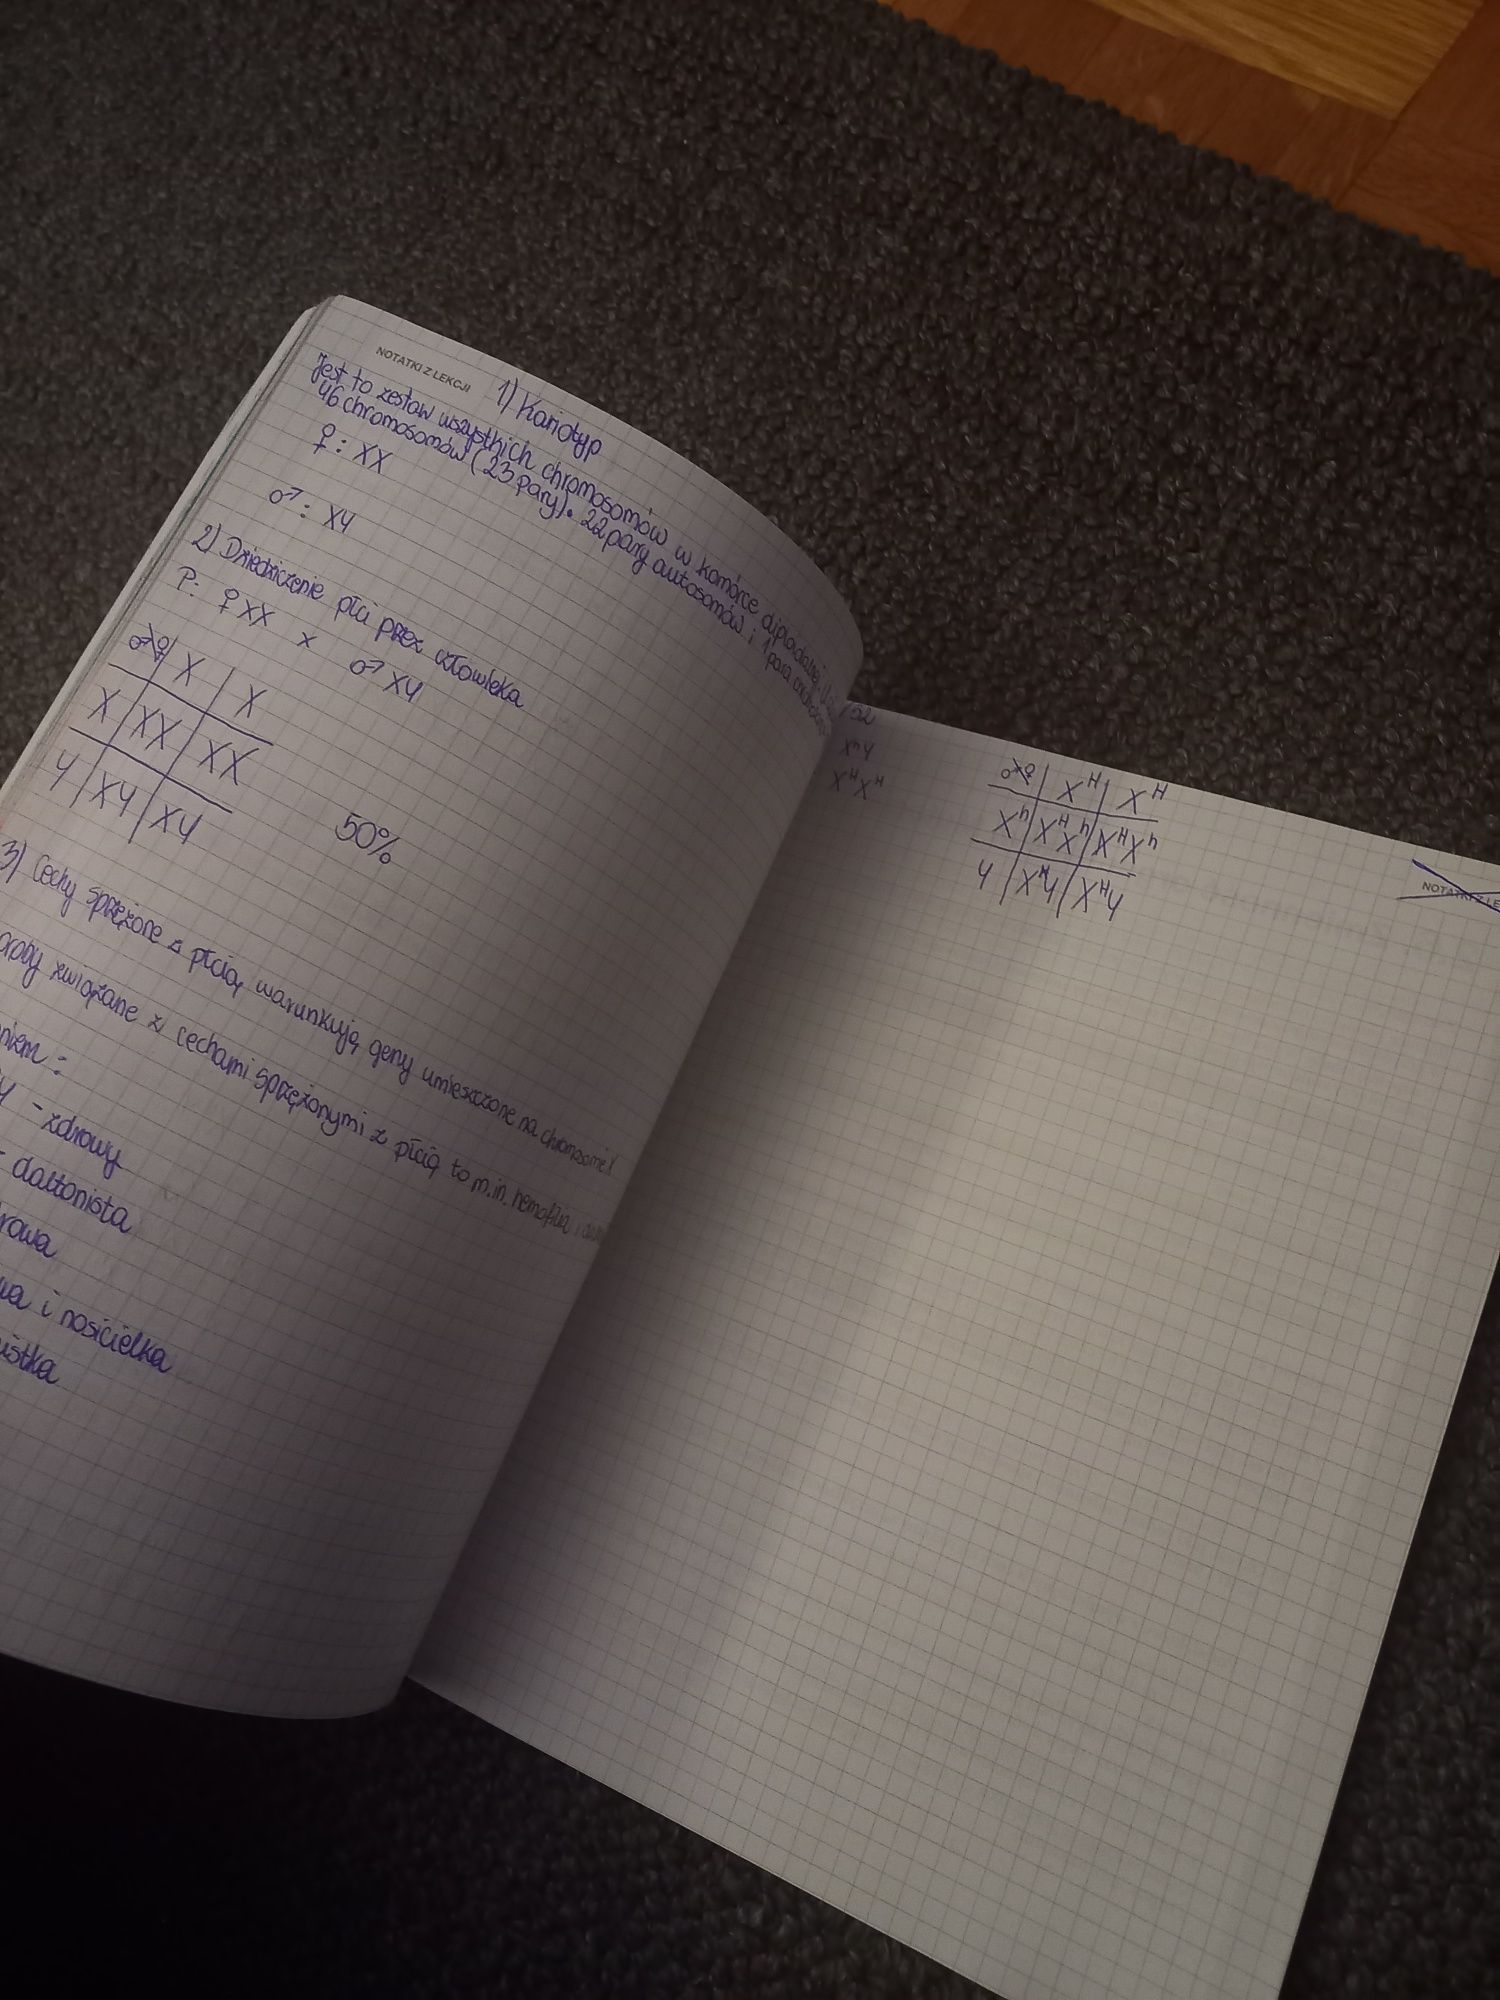 NOTATKI Z LEKCJI
1) Kariotyp
Jest to zestaw wszystkich chromosomów w komórce diploidalnej.
46 chromosomów (23 pary). 22 pary autosomów i 1 para
♀: XX
♂: XY
2) Dziedziczenie płci przez człowieka
P: ♀ XX x ♂ XY
♂\♀ X X
X XX XX
Y XY XY
50%
3) Cechy sprzężone z płcią warunkują geny umieszczone na chromosomie X
związane z cechami sprzężonymi z płcią to m.in. hemofilia i
- zdrowy
- daltonista
i nosicielka
/52
XʰY
XᴴXᴴ
♂\♀ Xᴴ Xᴴ
Xʰ XᴴXʰ XᴴXʰ
Y XᴴY XᴴY